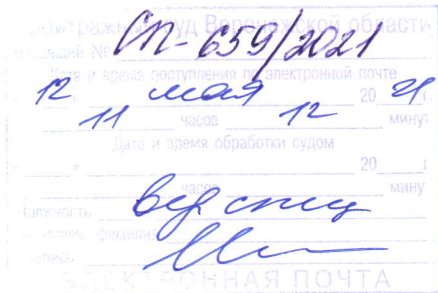 Арбитражный суд Воронежской области
Входящий № СП-659/2021
Дата и время поступления по электронной почте
12 мая 20 21
11 часов 12 минут
Дата и время обработки судом
20 г
часов минут
Должность вед спец
фамилия
подпись
ЭЛЕКТРОННАЯ ПОЧТА